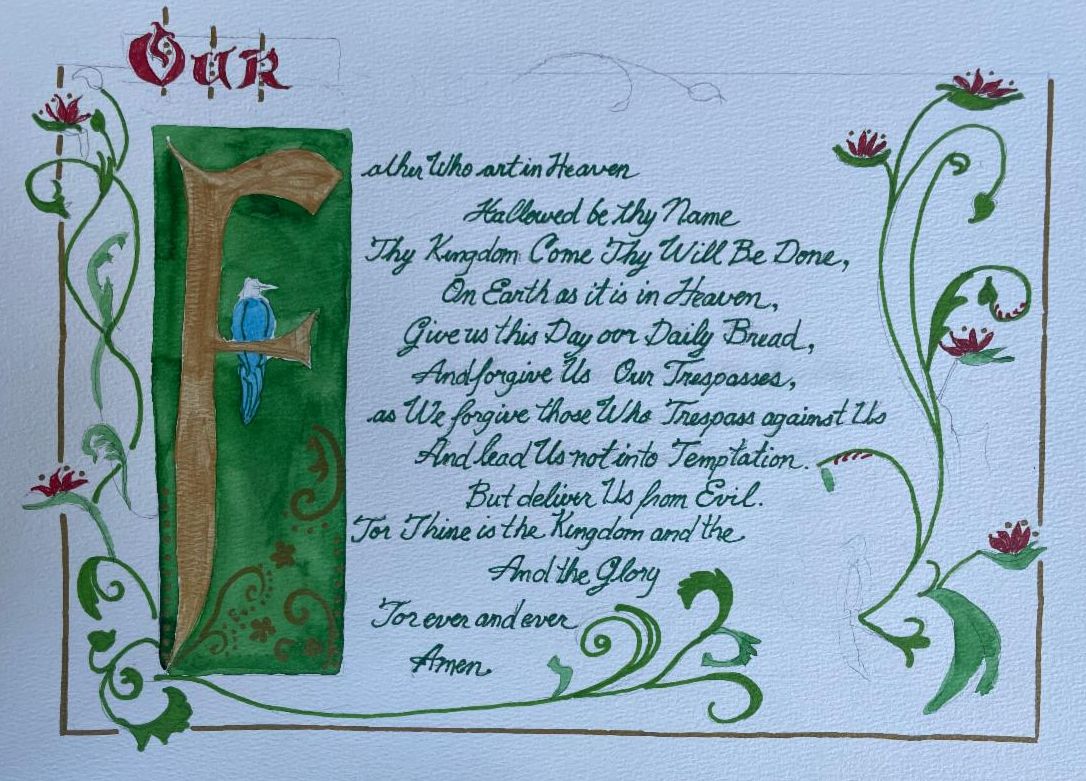 Our
Father Who art in Heaven
Hallowed be thy Name
Thy Kingdom Come Thy Will Be Done,
On Earth as it is in Heaven,
Give us this Day our Daily Bread,
And forgive Us Our Trespasses,
as We forgive those Who Trespass against Us
And lead Us not into Temptation.
But deliver Us from Evil.
For Thine is the Kingdom and the
And the Glory
For ever and ever
Amen.